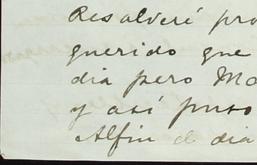 Resolveré pro
querido que
dia pero Ma
y así puso
Alfin el dia